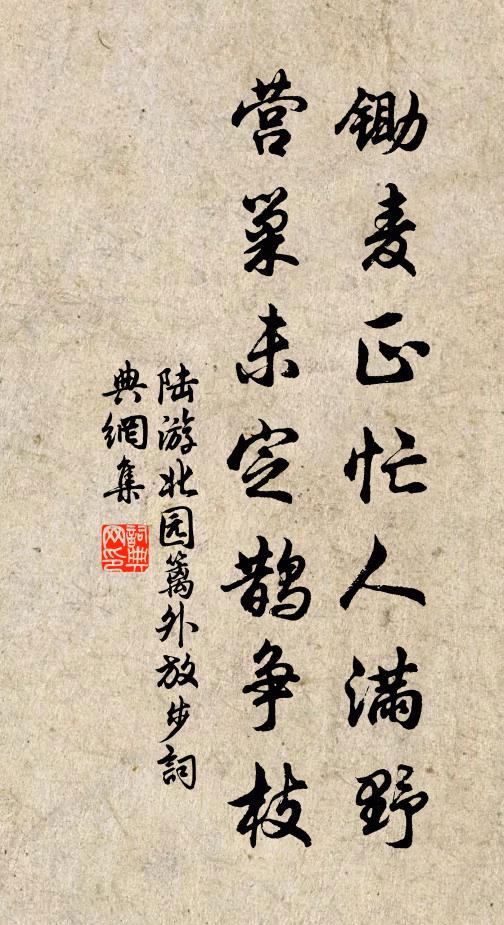 锄麦正忙人满野
营巢未定鹊争枝
陆游北园篱外放步詞
典網集
詞典網印